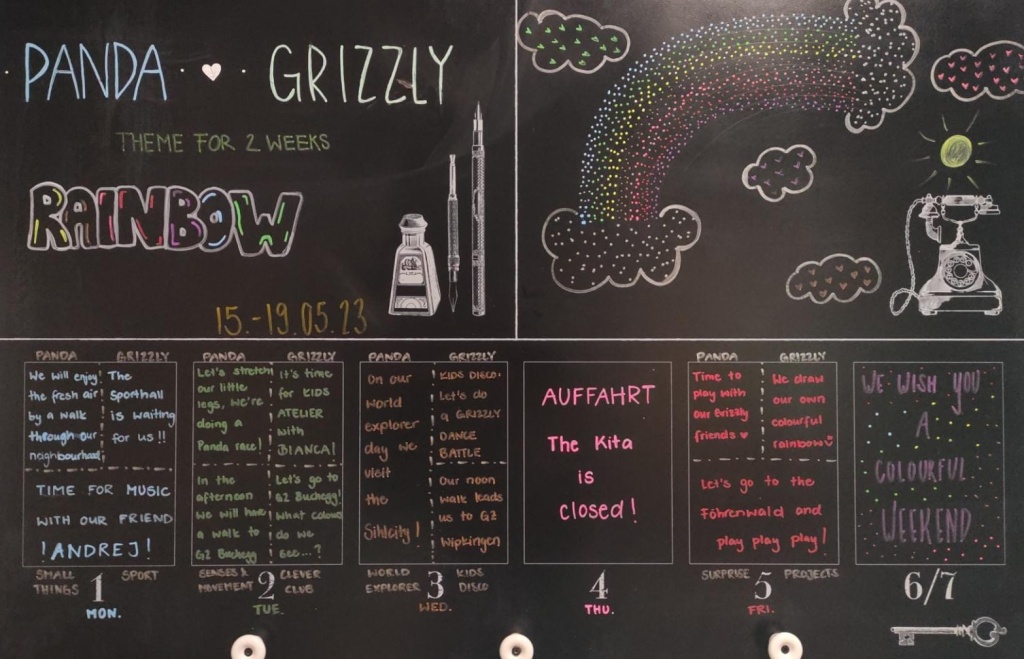 PANDA · ♥ · GRIZZLY
THEME FOR 2 WEEKS
RAINBOW
15.-19.05.23
PANDA
We will enjoy
the fresh air
by a walk
through our
neighbourhood,
GRIZZLY
The
Sporthall
is waiting
for us!!
TIME FOR MUSIC
WITH OUR FRIEND
! ANDREJ!
SMALL
THINGS
1
SPORT
MON.
PANDA
Let's stretch
our little
legs, we're
doing a
Panda race!
In the
afternoon
we will have
a walk to
GZ Buchegg
GRIZZLY
It's time
for KIDS
ATELIER
with
BIANCA!
Let's go to
GZ Buchegg!
What colours
do we
see...?
SENSES &
MOVEMENT
2
CLEVER
CLUB
TUE.
PANDA
On our
world
explorer
day we
visit
the
Sihlcity!
GRIZZLY
KIDS DISCO.
Let's do
a GRIZZLY
DANCE
BATTLE
Our noon
walk leads
us to GZ
Wipkingen
WORLD
EXPLORER
3
KIDS
DISCO
WED.
AUFFAHRT
The Kita
is
closed!
4
THU.
PANDA
Time to
play with
our Grizzly
friends ♥
GRIZZLY
We draw
our own
colourful
rainbow ♥
Let's go to the
Föhrenwald and
play play play!
SURPRISE
5
PROJECTS
FRI.
WE WISH YOU
A
COLOURFUL
WEEKEND
6/7